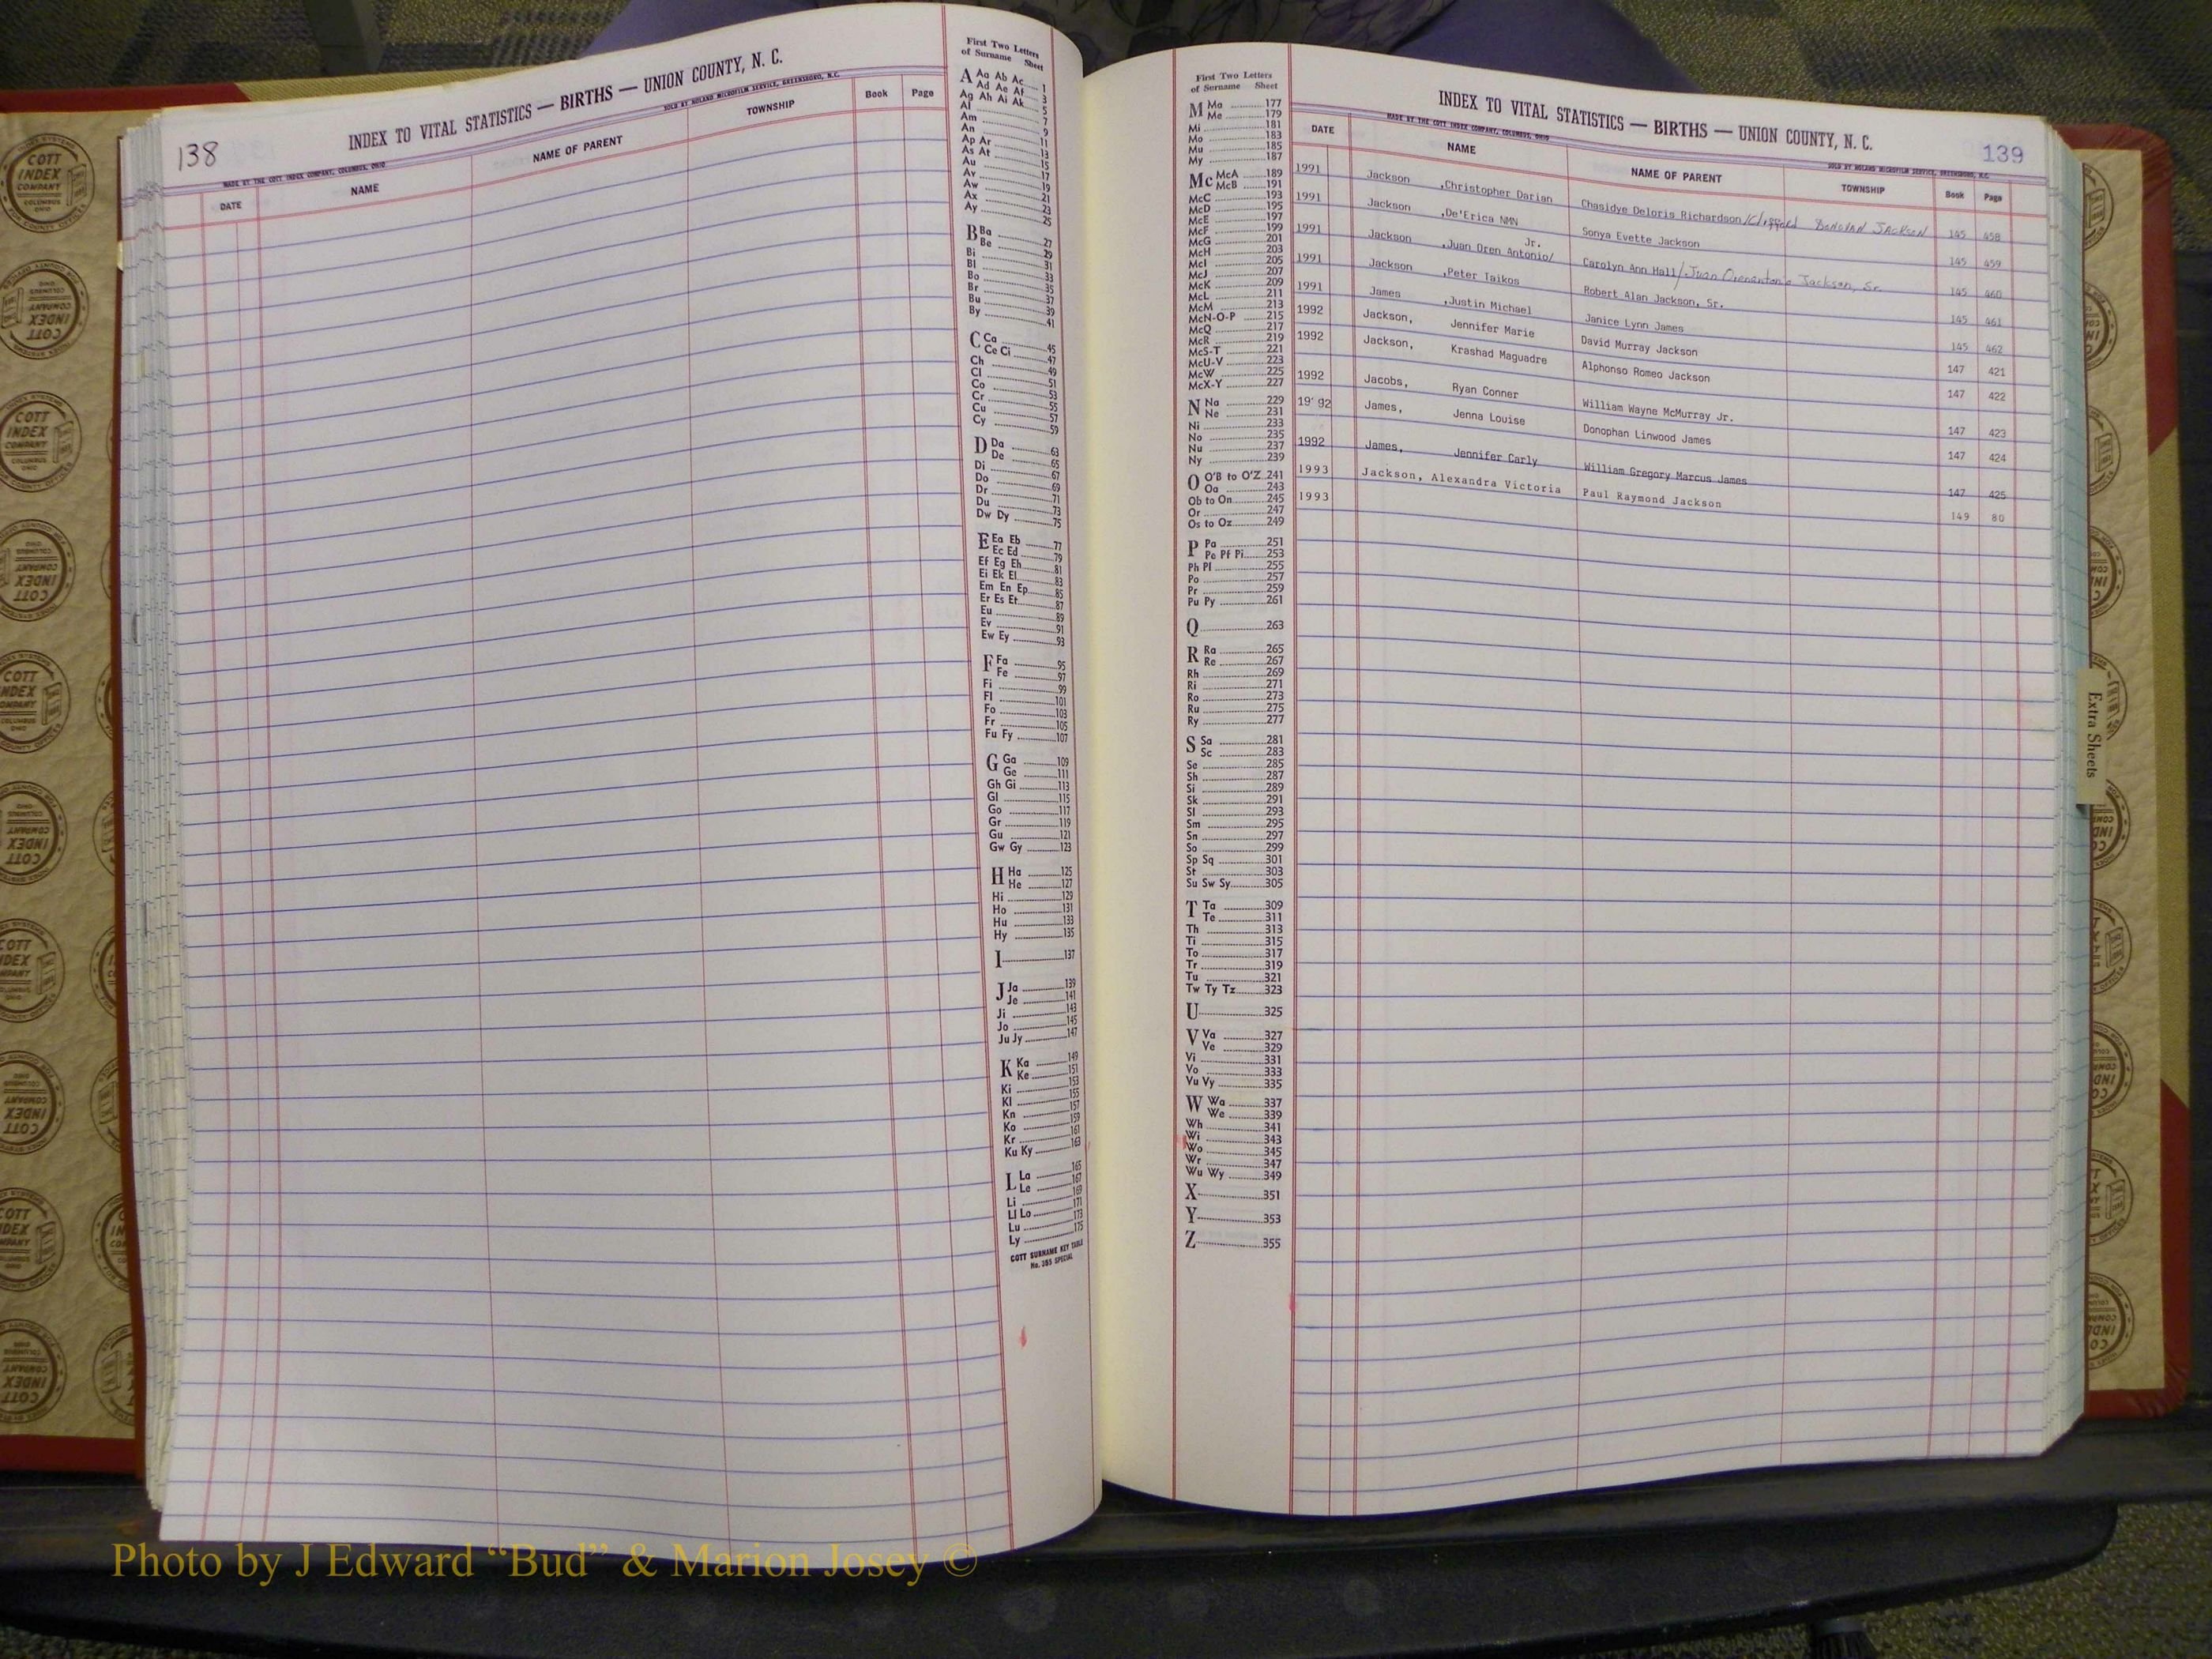 138
INDEX TO VITAL STATISTICS — BIRTHS — UNION COUNTY, N. C.
MADE BY THE COTT INDEX COMPANY, COLUMBUS, OHIO
SOLD BY NOLAND MICROFILM SERVICE, GREENSBORO, N.C.
DATE NAME NAME OF PARENT TOWNSHIP Book Page
First Two Letters
of Surname Sheet
A Aa Ab Ac 1
Ad Ae Af 3
Ag Ah Ai Ak 5
Al 7
Am 9
An 11
Ap Ar 13
As At 15
Au 17
Av 19
Aw 21
Ax 23
Ay 25
B Ba 27
Be 29
Bi 31
Bl 33
Bo 35
Br 37
Bu 39
By 41
C Ca 45
Ce Ci 47
Ch 49
Cl 51
Co 53
Cr 55
Cu 57
Cy 59
D Da 63
De 65
Di 67
Do 69
Dr 71
Du 73
Dw Dy 75
E Ea Eb 77
Ec Ed 79
Ef Eg Eh 81
Ei Ek El 83
Em En Ep 85
Er Es Et 87
Eu 89
Ev 91
Ew Ey 93
F Fa 95
Fe 97
Fi 99
Fl 101
Fo 103
Fr 105
Fu Fy 107
G Ga 109
Ge 111
Gh Gi 113
Gl 115
Go 117
Gr 119
Gu 121
Gw Gy 123
H Ha 125
He 127
Hi 129
Ho 131
Hu 133
Hy 135
I 137
J Ja 139
Je 141
Ji 143
Jo 145
Ju Jy 147
K Ka 149
Ke 151
Ki 153
Kl 155
Kn 157
Ko 159
Kr 161
Ku Ky 163
L La 165
Le 167
Li 169
Ll Lo 171
Lu 173
Ly 175
COTT SURNAME KEY TABLE
No. 383 SPECIAL
First Two Letters
of Surname Sheet
M Ma 177
Me 179
Mi 181
Mo 183
Mu 185
My 187
Mc McA 189
McB 191
McC 193
McD 195
McE 197
McF 199
McG 201
McH 203
McI 205
McJ 207
McK 209
McL 211
McM 213
McN-O-P 215
McQ 217
McR 219
McS-T 221
McU-V 223
McW 225
McX-Y 227
N Na 229
Ne 231
Ni 233
No 235
Nu 237
Ny 239
O O'B to O'Z 241
Oa 243
Ob to On 245
Or 247
Os to Oz 249
P Pa 251
Pe Pf Pi 253
Ph Pl 255
Po 257
Pr 259
Pu Py 261
Q 263
R Ra 265
Re 267
Rh 269
Ri 271
Ro 273
Ru 275
Ry 277
S Sa 281
Sc 283
Se 285
Sh 287
Si 289
Sk 291
Sl 293
Sm 295
Sn 297
So 299
Sp Sq 301
St 303
Su Sw Sy 305
T Ta 309
Te 311
Th 313
Ti 315
To 317
Tr 319
Tu 321
Tw Ty Tz 323
U 325
V Va 327
Ve 329
Vi 331
Vo 333
Vu Vy 335
W Wa 337
We 339
Wh 341
Wi 343
Wo 345
Wr 347
Wu Wy 349
X 351
Y 353
Z 355
INDEX TO VITAL STATISTICS — BIRTHS — UNION COUNTY, N. C.
139
MADE BY THE COTT INDEX COMPANY, COLUMBUS, OHIO
SOLD BY NOLAND MICROFILM SERVICE, GREENSBORO, N.C.
DATE NAME NAME OF PARENT TOWNSHIP Book Page
1991 Jackson ,Christopher Darian Chasidye Deloris Richardson/Clifford DONOVAN JACKSON 145 458
1991 Jackson ,De'Erica NMN Sonya Evette Jackson 145 459
1991 Jackson ,Juan Oren Antonio/ Jr. Carolyn Ann Hall/Juan Orenantonio Jackson, Sr. 145 460
1991 Jackson ,Peter Taikos Robert Alan Jackson, Sr. 145 461
1991 James ,Justin Michael Janice Lynn James 145 462
1992 Jackson, Jennifer Marie David Murray Jackson 147 421
1992 Jackson, Krashad Maguadre Alphonso Romeo Jackson 147 422
1992 Jacobs, Ryan Conner William Wayne McMurray Jr. 147 423
19'92 James, Jenna Louise Donophan Linwood James 147 424
1992 James, Jennifer Carly William Gregory Marcus James 147 425
1993 Jackson, Alexandra Victoria Paul Raymond Jackson 149 80
1993
Extra Sheets
COTT
INDEX
COMPANY
COLUMBUS
OHIO
Photo by J Edward “Bud” & Marion Josey ©